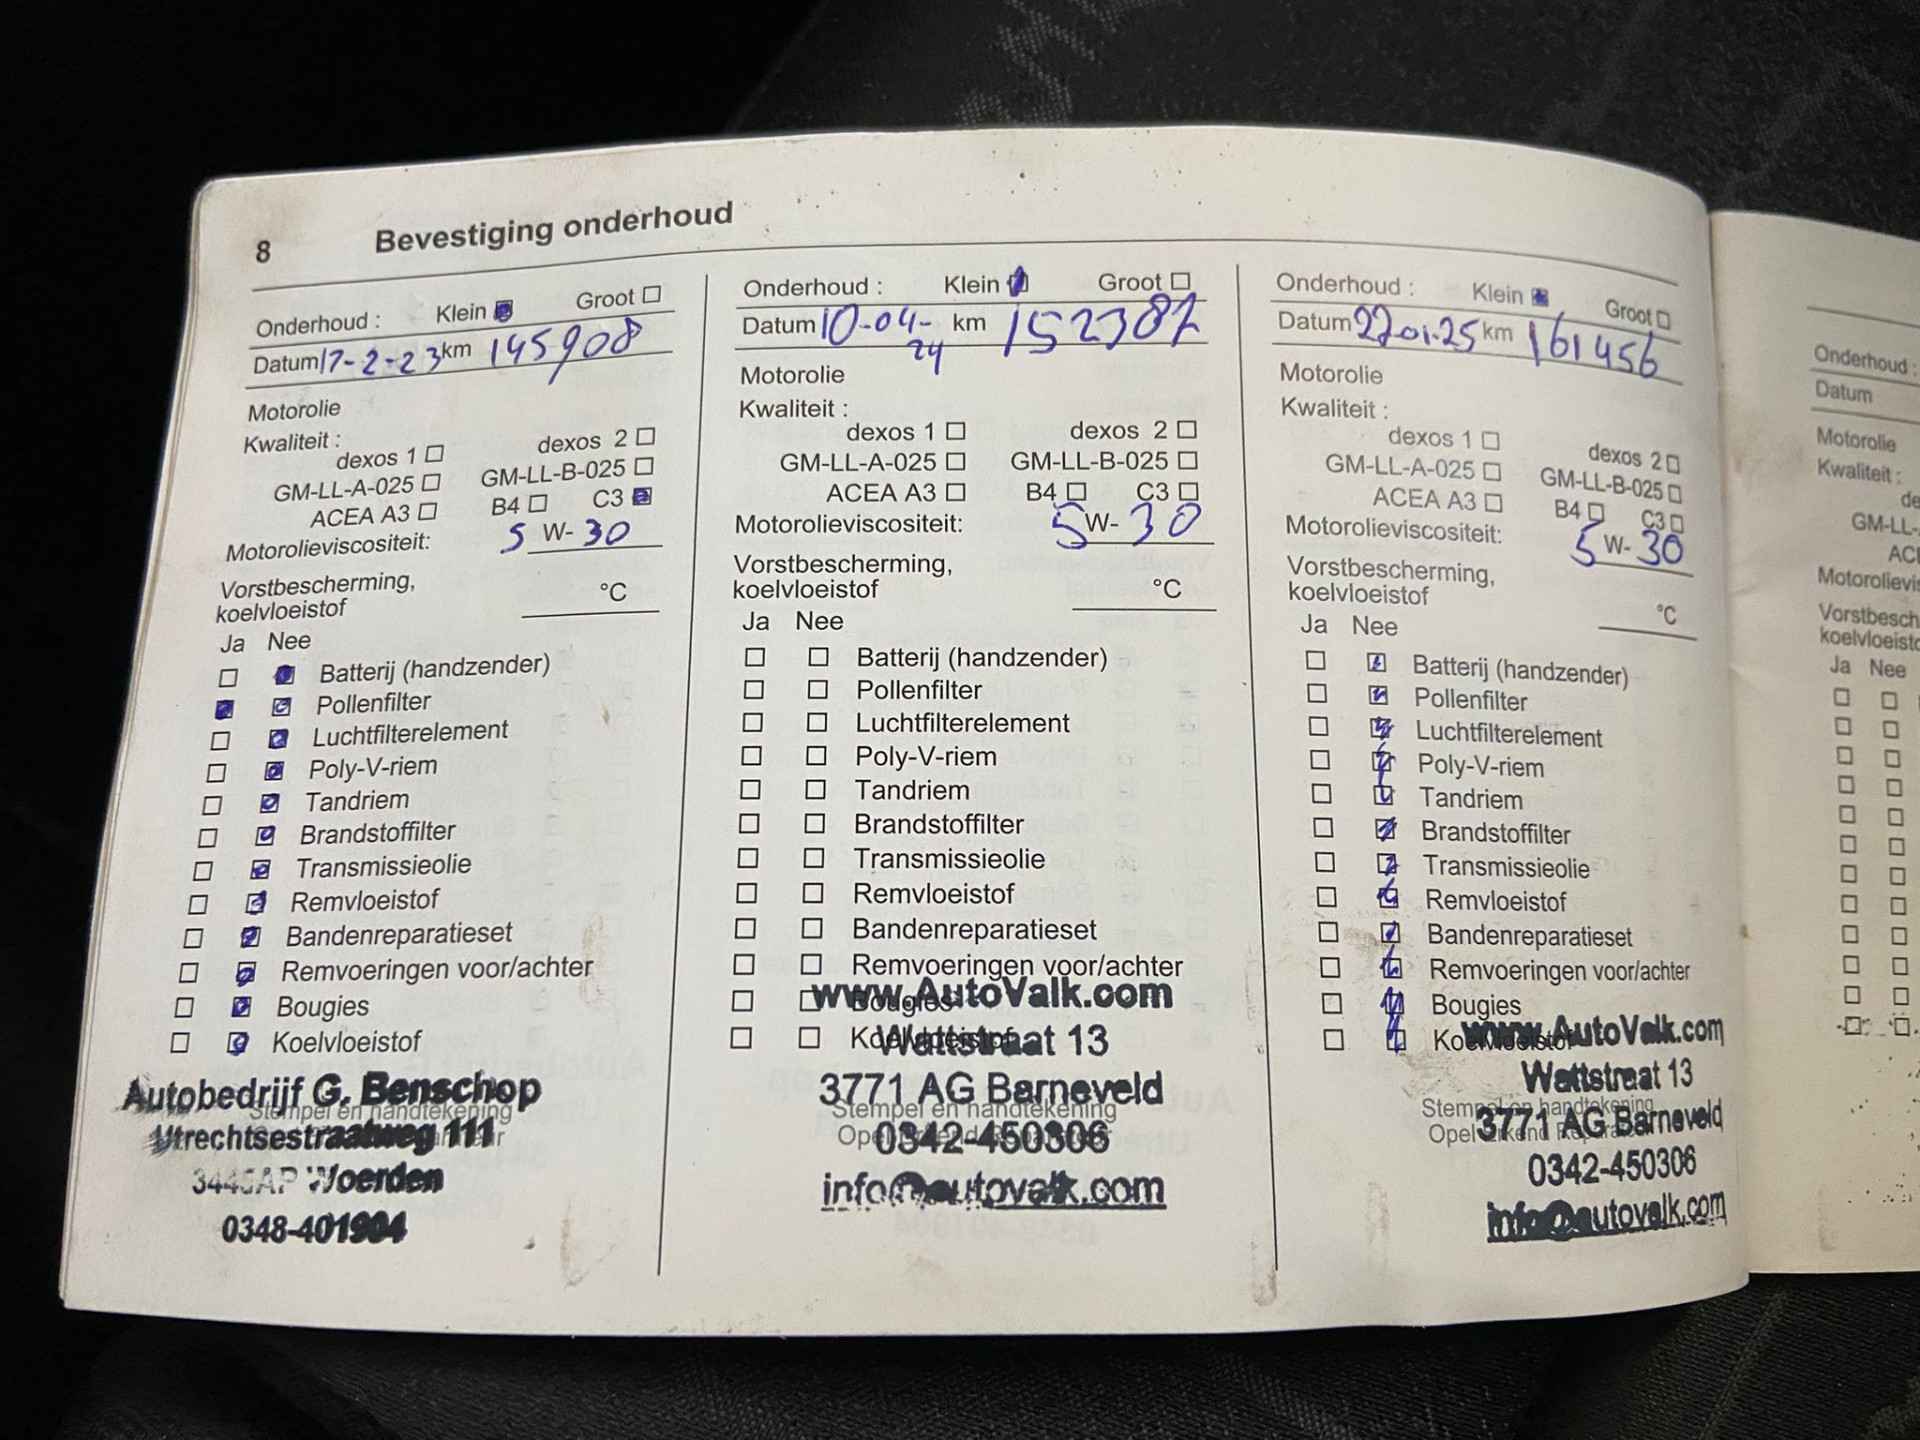 8 Bevestiging onderhoud
Onderhoud : Klein Groot
Datum 17-2-23 km 145908
Motorolie
Kwaliteit :
dexos 1 dexos 2
GM-LL-A-025 GM-LL-B-025
ACEA A3 B4 C3
Motorolieviscositeit: 5 W- 30
Vorstbescherming,
koelvloeistof °C
Ja Nee
Batterij (handzender)
Pollenfilter
Luchtfilterelement
Poly-V-riem
Tandriem
Brandstoffilter
Transmissieolie
Remvloeistof
Bandenreparatieset
Remvoeringen voor/achter
Bougies
Koelvloeistof
Autobedrijf G. Benschop
Stempel en handtekening
Utrechtsestraatweg 111
Woerden
0348-401904
Onderhoud : Klein Groot
Datum 10-04- km 152387
24
Motorolie
Kwaliteit :
dexos 1 dexos 2
GM-LL-A-025 GM-LL-B-025
ACEA A3 B4 C3
Motorolieviscositeit: 5 W- 30
Vorstbescherming,
koelvloeistof °C
Ja Nee
Batterij (handzender)
Pollenfilter
Luchtfilterelement
Poly-V-riem
Tandriem
Brandstoffilter
Transmissieolie
Remvloeistof
Bandenreparatieset
Remvoeringen voor/achter
www.AutoValk.com
Bougies
Koelvloeistof
Wattstraat 13
3771 AG Barneveld
Stempel en handtekening
Opel
0342-450306
info@autovalk.com
Onderhoud : Klein Groot
Datum 22 01.25 km 161456
Motorolie
Kwaliteit :
dexos 1 dexos 2
GM-LL-A-025 GM-LL-B-025
ACEA A3 B4 C3
Motorolieviscositeit: 5 W- 30
Vorstbescherming,
koelvloeistof °C
Ja Nee
Batterij (handzender)
Pollenfilter
Luchtfilterelement
Poly-V-riem
Tandriem
Brandstoffilter
Transmissieolie
Remvloeistof
Bandenreparatieset
Remvoeringen voor/achter
Bougies
Koelvloeistof
www.AutoValk.com
Wattstraat 13
Stempel en handtekening
3771 AG Barneveld
Opel
0342-450306
info@autovalk.com
Onderhoud :
Datum
Motorolie
Kwaliteit :
GM-LL-
Ja Nee